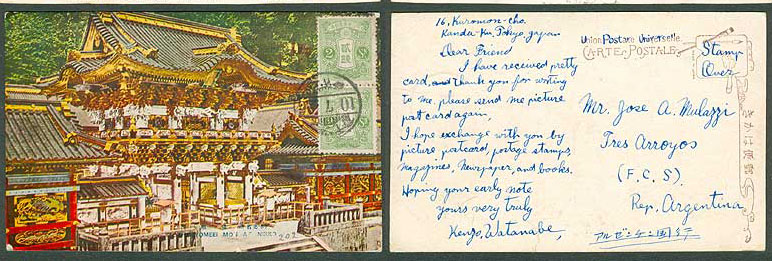 2
貳錢
10
YOMEEI MO'I AT NIKKO
202
16, Kuromon-cho,
Kanda-Ku, Tokyo, Japan
Dear Friend
I have received pretty
card, and thank you for writing
to me, please send me picture
post card again,
I hope exchange with you by
picture postcard, postage stamps,
magazines, Newspaper, and books.
Hoping your early note
yours very truly
Kenzo, Watanabe,
Union Postare Universelle.
CARTE POSTALE
Stamp
Over
Mr. Jose A. Mulazzi
Tres Arroyos
(F.C.S.)
Rep. Argentina
アルゼンチン国行
きかは便郵